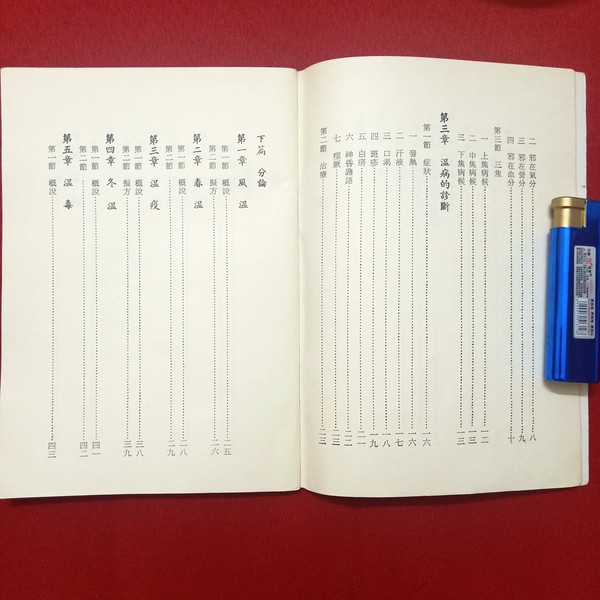 二 邪在氣分……八
三 邪在營分……九
四 邪在血分……十
第三節 三焦
一 上焦病候……一二
二 中焦病候……一三
三 下焦病候……一三
第三章 溫病的診斷
第一節 症狀……一六
一 發熱……一六
二 汗液……一七
三 口渴……一八
四 斑疹……一九
五 白㾦……二一
六 神昏譫語……二二
七 痙厥……二三
第二節 治療……二三
下篇 分論
第一章 風溫
第一節 概說……二五
第二節 擬方……二六
第二章 春溫
第一節 概說……二八
第二節……二九
第三章 溫疫
第一節 概說……三八
第二節 擬方……三九
第四章 冬溫
第一節 概說……四一
第二節……四二
第五章 溫毒
第一節 概說……四三